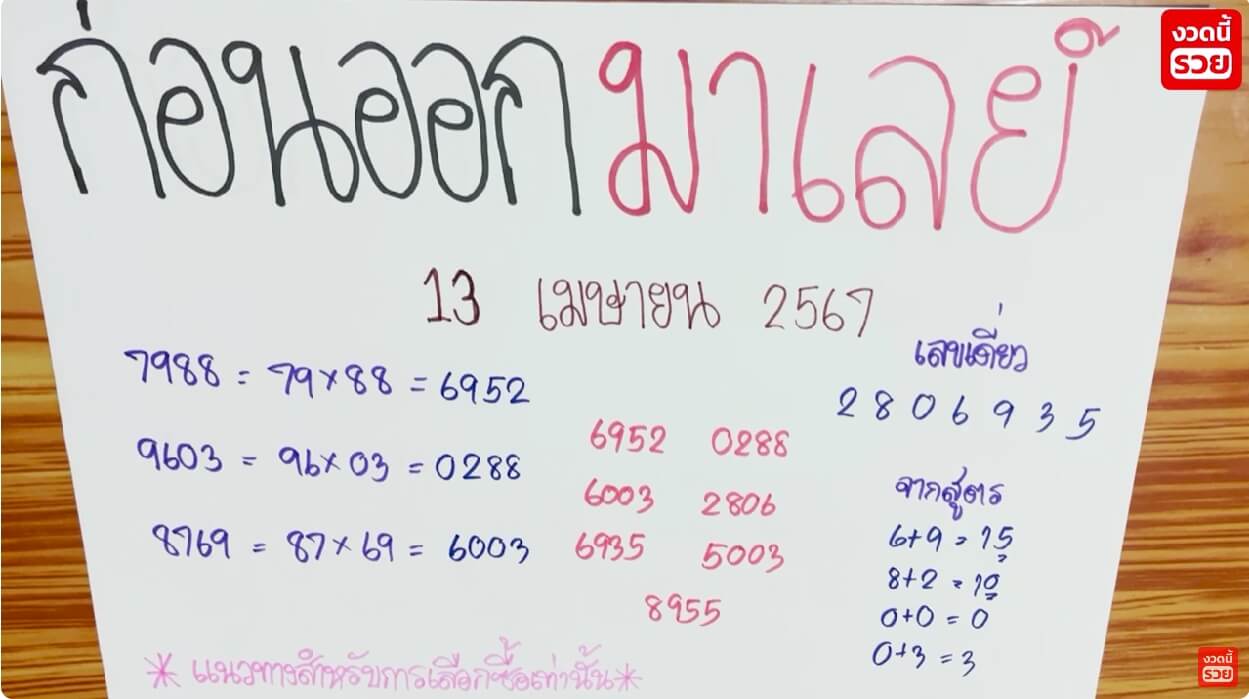 ก่อนออกมาเลย์
งวดนี้
รวย
13 เมษายน 2567
7988 = 79×88 = 6952
9603 = 96×03 = 0288
8769 = 87×69 = 6003
6952 0288
6003 2806
6935 5003
8955
เลขเดี่ยว
2 8 0 6 9 3 5
จากสูตร
6+9 = 15
8+2 = 10
0+0 = 0
0+3 = 3
*แนวทางสำหรับการเลือกซื้อเท่านั้น*
งวดนี้
รวย